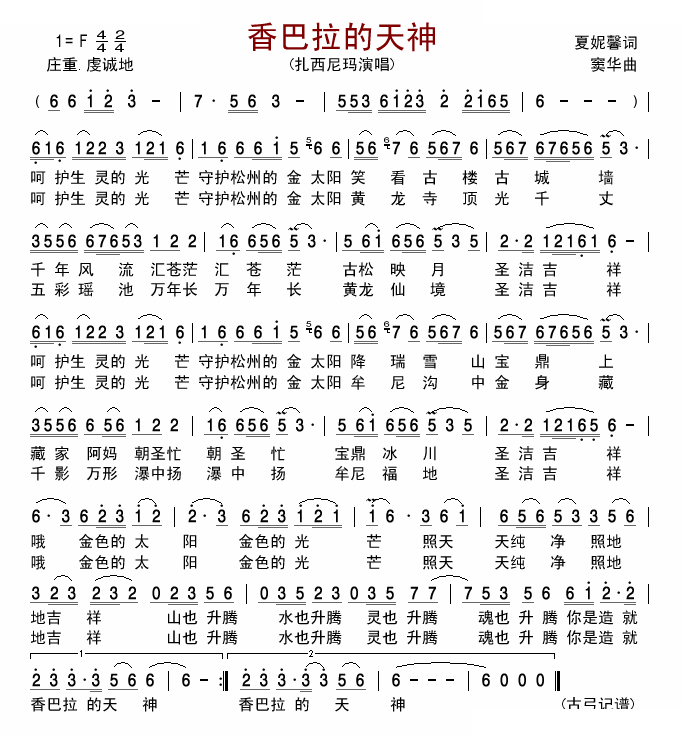 香巴拉的天神
1= F 4/4 2/4
夏妮馨词
庄重.虔诚地
(扎西尼玛演唱)
窦华曲
( 6 6 1 2 3 - | 7 · 5 6 3 - | 5 5 3 6 1 2 3 2 2 1 6 5 | 6 - - - ) |
6 1 6 1 2 2 3 1 2 1 6 | 1 6 6 6 1 5 6 6 | 5 6 7 6 5 6 7 6 | 5 6 7 6 7 6 5 6 5 3 · |
呵 护生 灵的 光 芒 守护松州的 金 太阳 笑 看 古 楼 古 城 墙
呵 护生 灵的 光 芒 守护松州的 金 太阳 黄 龙 寺 顶 光 千 丈
3 5 5 6 6 7 6 5 3 1 2 2 | 1 6 6 5 6 5 3 · | 5 6 1 6 5 6 5 3 5 | 2 · 2 1 2 1 6 1 6 - |
千 年 风 流 汇苍茫 汇 苍 茫 古松 映 月 圣 洁吉 祥
五 彩 瑶 池 万年长 万 年 长 黄龙 仙 境 圣 洁吉 祥
6 1 6 1 2 2 3 1 2 1 6 | 1 6 6 6 1 5 6 6 | 5 6 7 6 5 6 7 6 | 5 6 7 6 7 6 5 6 5 3 · |
呵 护生 灵的 光 芒 守护松州的 金 太阳 降 瑞 雪 山 宝 鼎 上
呵 护生 灵的 光 芒 守护松州的 金 太阳 牟 尼 沟 中 金 身 藏
3 5 5 6 6 5 6 1 2 2 | 1 6 6 5 6 5 3 · | 5 6 1 6 5 6 5 3 5 | 2 · 2 1 2 1 6 1 6 - |
藏 家 阿妈 朝圣忙 朝 圣 忙 宝鼎 冰 川 圣 洁吉 祥
千 影 万形 瀑中扬 瀑 中 扬 牟尼 福 地 圣 洁吉 祥
6 · 3 6 2 3 1 2 | 2 · 3 6 2 3 1 2 1 | 1 6 · 3 6 1 | 6 5 6 5 3 3 5 6 |
哦 金色的 太 阳 金色的 光 芒 照天 天纯 净 照地
哦 金色的 太 阳 金色的 光 芒 照天 天纯 净 照地
3 2 3 2 3 2 0 2 3 5 6 | 0 3 5 2 3 0 3 5 7 7 | 7 5 3 5 6 6 1 2 · 2 |
地吉 祥 山也 升腾 水也升腾 灵也 升腾 魂也 升 腾 你是造 就
地吉 祥 山也 升腾 水也升腾 灵也 升腾 魂也 升 腾 你是造 就
1 2
2 3 3 · 3 5 6 6 | 6 - :‖ 2 3 3 · 3 3 5 6 | 6 - - - | 6 0 0 0 ‖
香巴拉 的天 神 香巴拉 的 天 神 (古弓记谱)